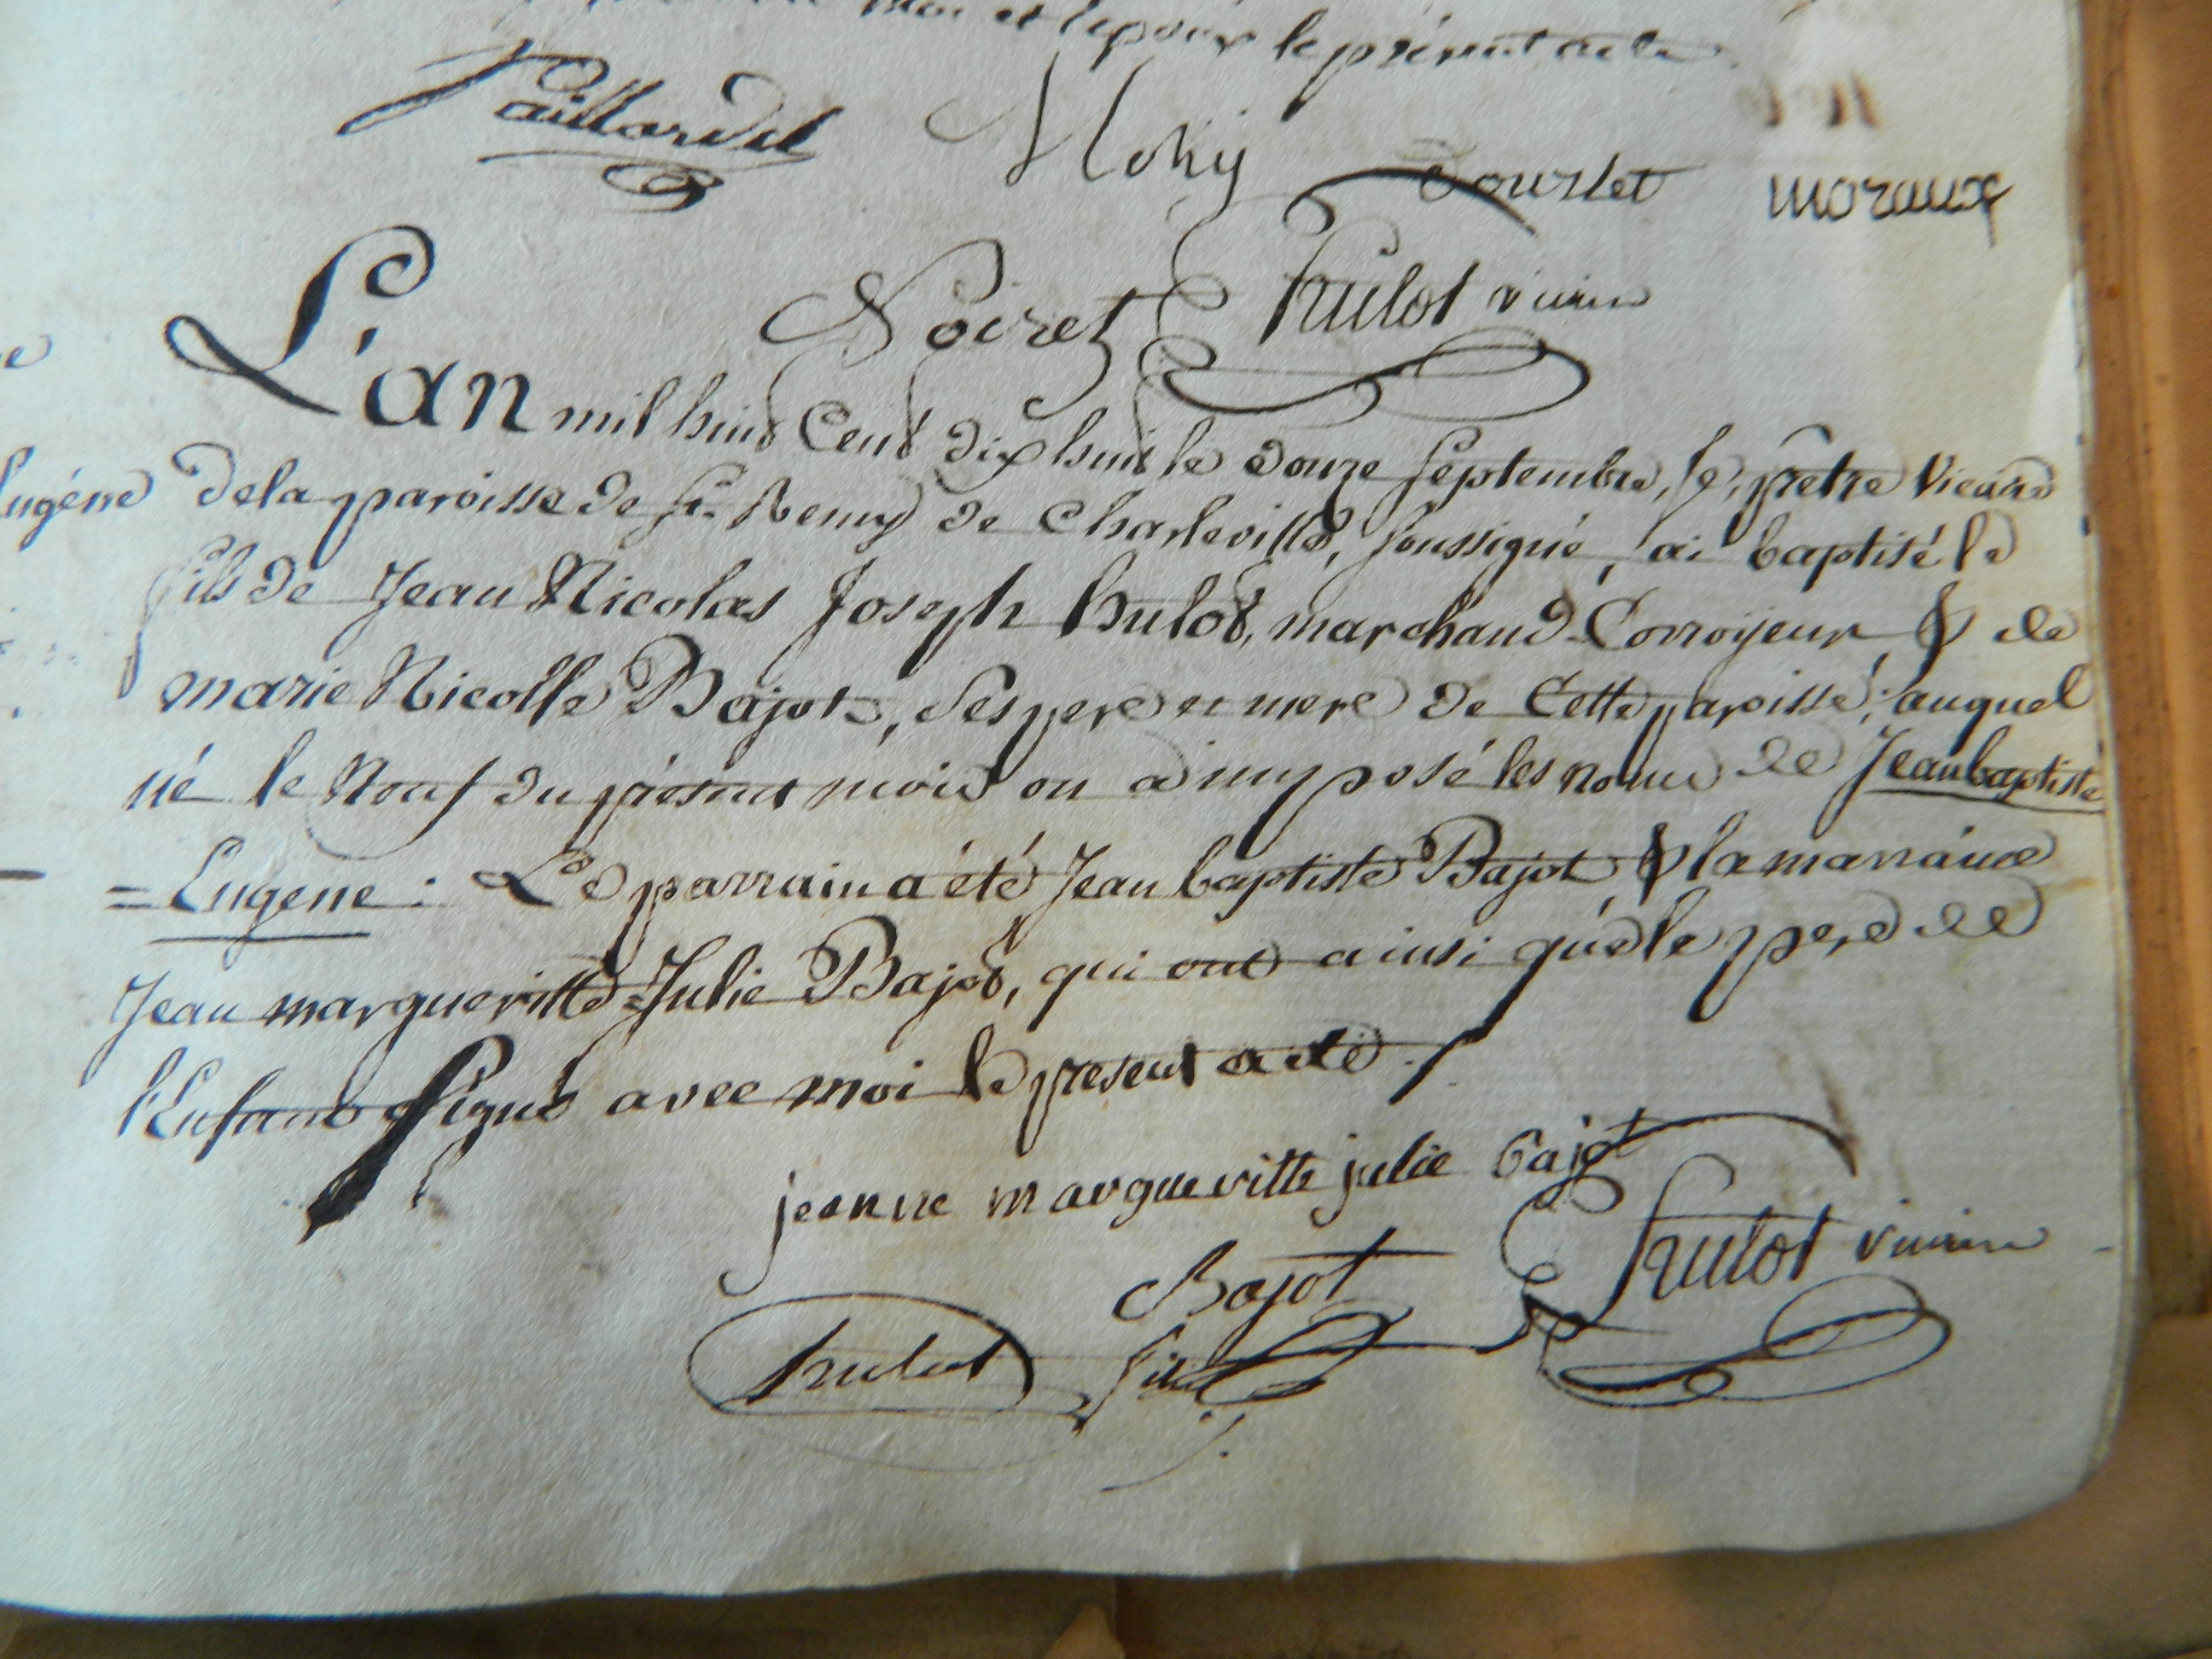 moi et l'epoux le présent acte.
Paillardel Mohy Tourlet moraux
Noiret hulot vicaire
L'an mil huit Cent dix huit le douze Septembre, Je, prêtre Vicaire
Eugéne de la paroisse de St. Remy de Charleville, soussigné, ai baptisé le
fils de Jean Nicolas Joseph hulot, marchand Corroyeur, & de
marie Nicolle Bajot, ses pere et mere de Cette paroisse; auquel
né le Neuf du présent mois on a imposé les noms de Jean baptiste
= Eugene : Le parrain a été Jean baptiste Bajot & la marraine
Jean margueritte Julie Bajot, qui ont ainsi que le pere de
l'Enfant signé avec moi le present acte.
jeanne margueritte julie bajot
Bajot hulot vicaire
hulot fils